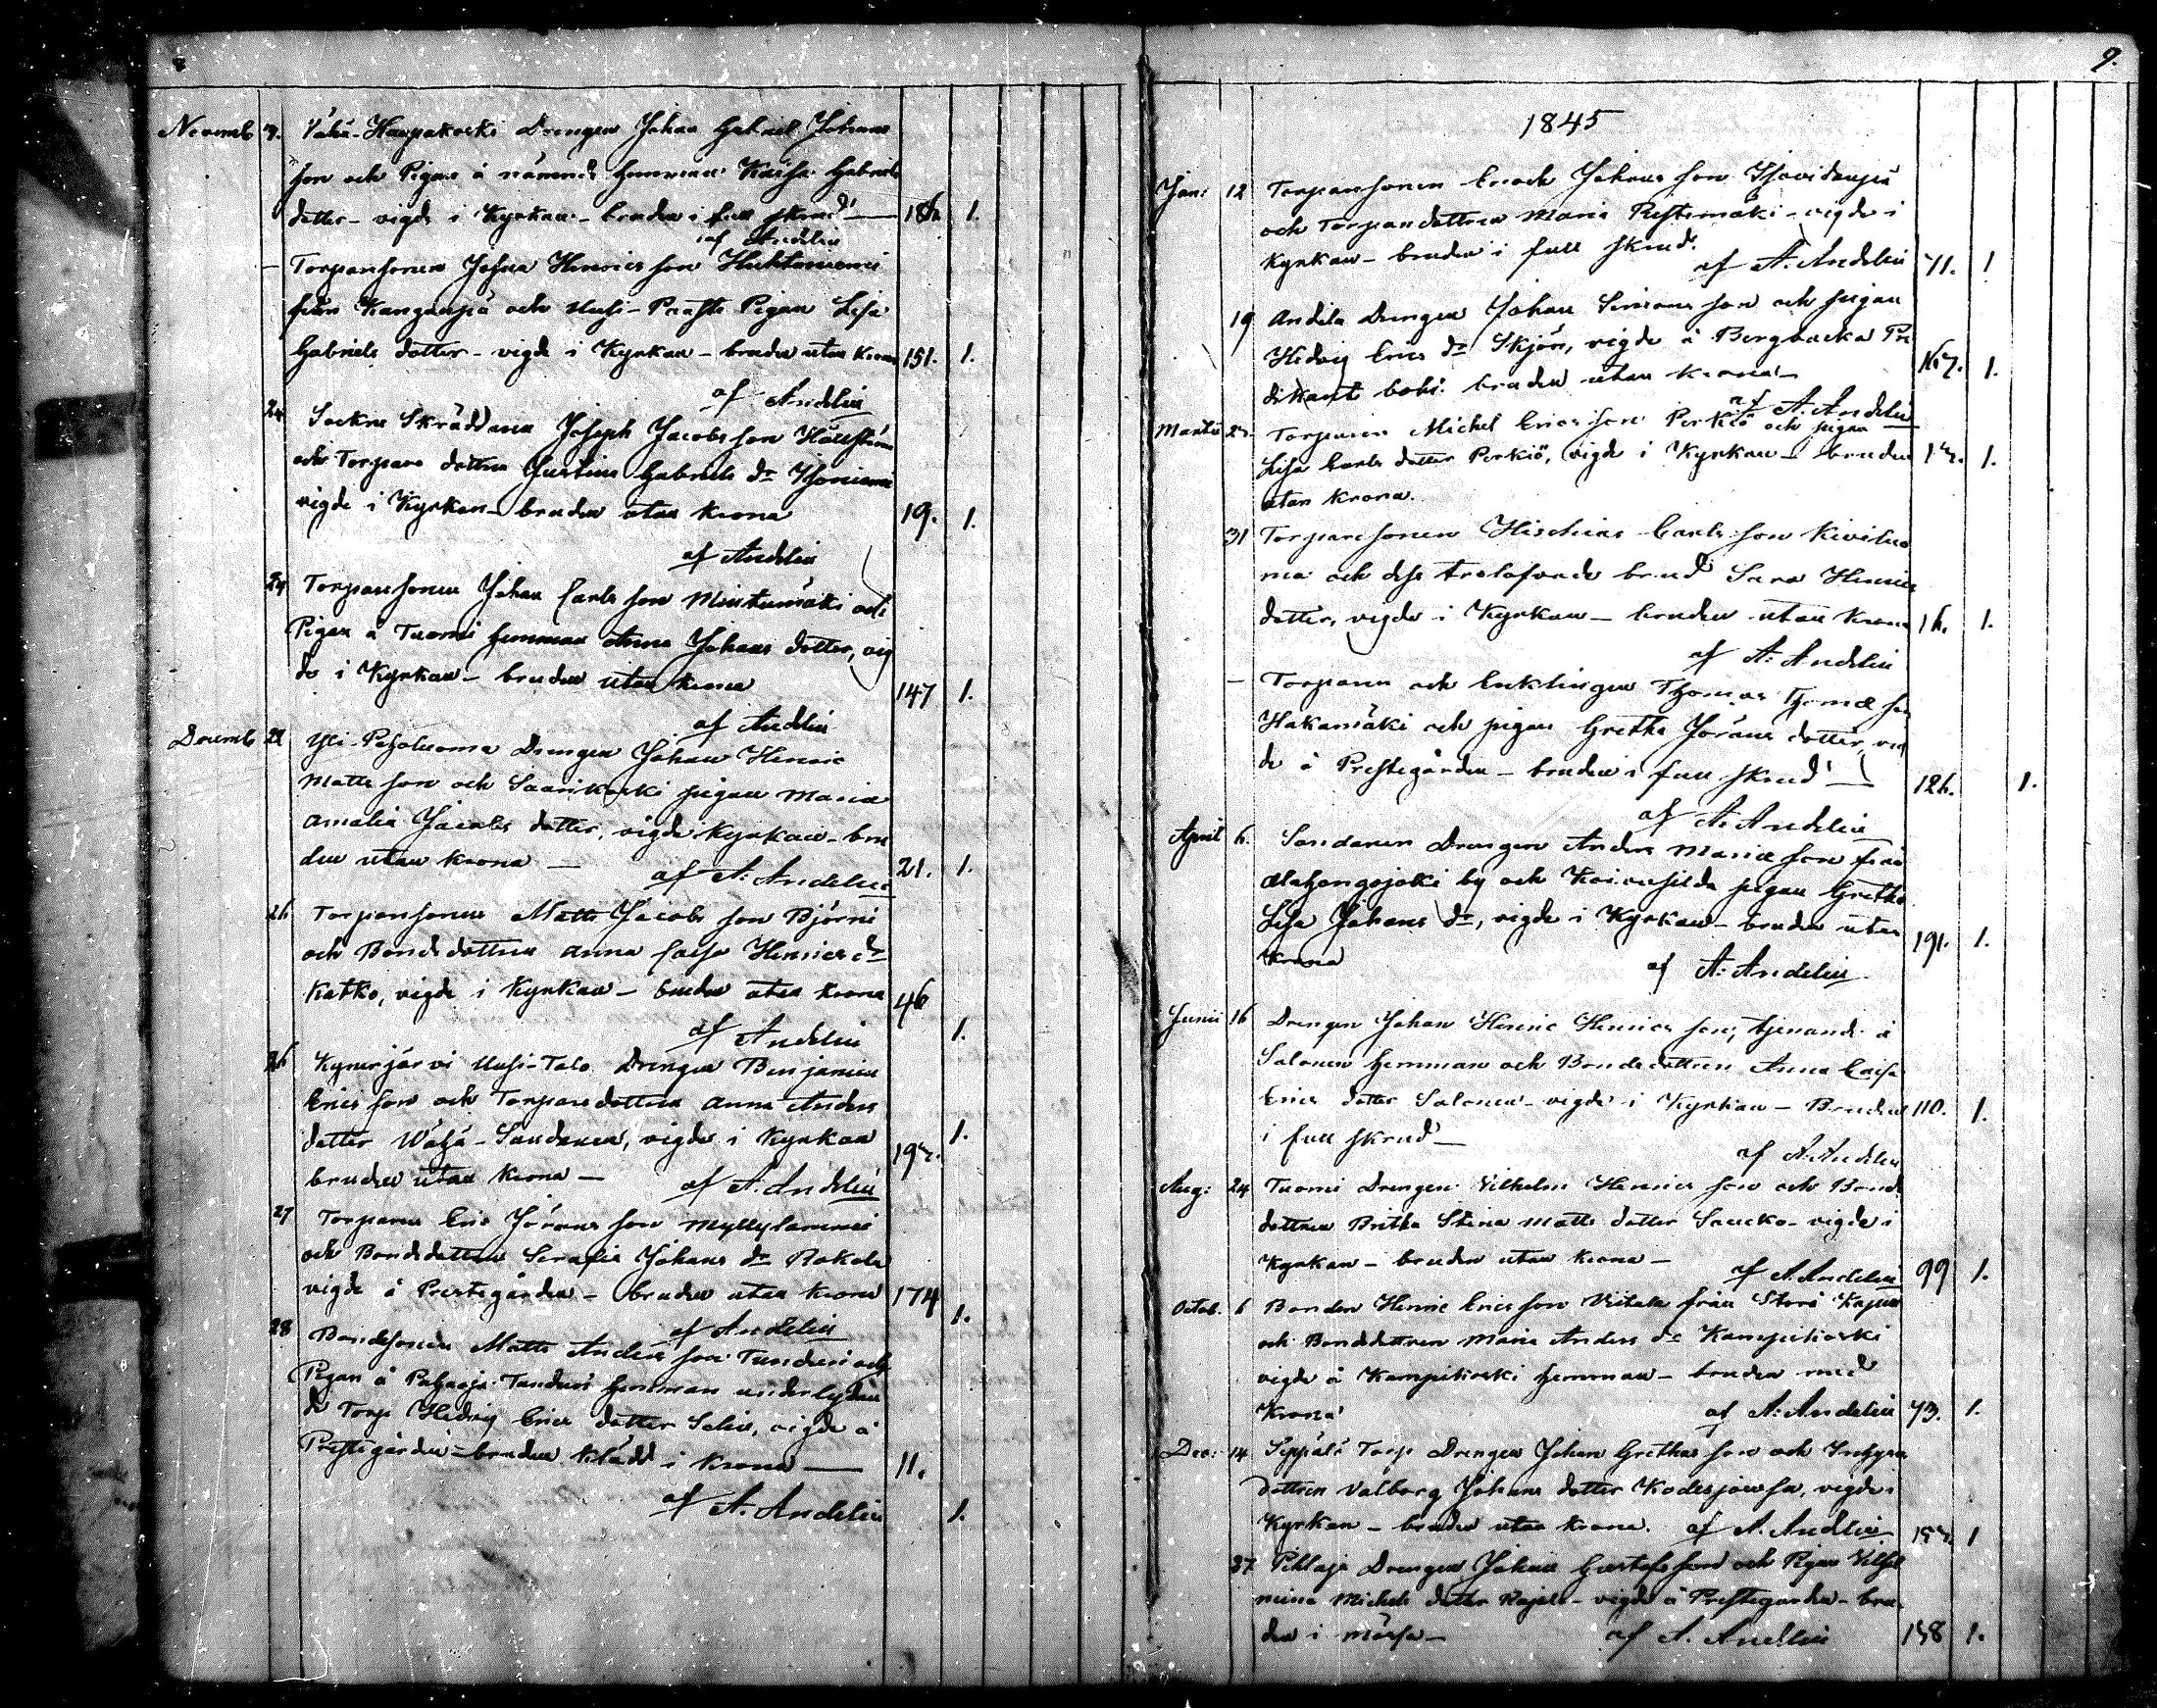 Novemb 3. Vähä-Haapakoski Drengen Johan Gabriel Johans
son och Pigan å nämnde hemman Kaisa Gabriels
dotter - vigde i Kyrkan - bruden i full skrud 186 1.
af Andelin
- Torparesonen Josua Henrics son Huhtaniemi
från Kangaspä och Uusi- Pigan Lisa
Gabriels dotter - vigde i Kyrkan - bruden utan Krona 151. 1.
af Andelin
24 Sockne Skräddaren Joseph Jacobs son Hällström
och Torpare dottren Justina Gabriels dr
vigde i Kyrkan - bruden utan Krona 19. 1.
af Andelin
24 Torparesonen Johan Carls son och
Pigan å Tuomi hemman Anna Johans dotter, vig
de i Kyrkan - bruden utan Krona 147 1.
af Andelin
Decemb 22 Yli-Pajaluoma Drengen Johan Henric
Matts son och Saarikoski pigan Maria
Amalia Jacobs dotter, vigde i Kyrkan - bru
den utan Krona - 21. 1.
af A. Andelin
26 Torparesonen Matts Jacobs son Björni
och Bondedottren Anna Caisa Henrics dr
Katko, vigde i Kyrkan - bruden utan Krona 46
af Andelin 1.
26 Kynerjärvi Uusi-Talo Drengen Benjamin
Erics son och Torparedottren Anna Anders
dotter Wähä-Sandanen, vigde i Kyrkan 1.
bruden utan Krona - af A. Andelin
27 Torparen Eric Jörans son Myllylammi
och Bondedottren Serafia Johans dr Rokola
vigde å Prestegården - bruden utan Krona 174
af Andelin 1.
28 Bondesonen Matts Anders son och
Pigan å hemman underlydan
de Torp Hedvig Erics dotter Selin, vigde å
Prestgården - bruden klädd i Krona - 11.
af A. Andelin 1.
9.
1845
Jan: 12 Torparesonen Enoch Johans son
och Torparedottren Maria - vigde i
Kyrkan - bruden i full skrud.
af A. Andelin 71. 1
19 Andila Drengen Johan Simons son och pigan
Hedvig Erics dr Skjöre, vigde å Bergbacka Pre
dikants bohl. bruden utan Krona - 167. 1.
af A. Andelin
Martii Torparen Michel Erics son Perkiö och pigan
Lisa Carls dotter Perkiö, vigde i Kyrkan - bruden 1.
utan Krona.
31 Torparesonen Hischias Carls son Kiviluo
ma och dess trolofvade brud Sara Henrics
dotter, vigde i Kyrkan - bruden utan Krona 16. 1.
af A. Andelin
- Torparen och Enklingen Thomas Thomæ son
Hakamäki och pigan Gretha Jörans dotter, vig
de å Prestegården - bruden i full skrud - 126. 1.
af A. Andelin
April 6. Sandanen Drengen Anders Mariæ son från
Alahongojoki by och pigan Gretha
Lisa Johans dr, vigde i Kyrkan - bruden utan 191. 1.
Krona af A. Andelin
Junii 16 Drengen Johan Henric Henrics son, tjenande å
Salonen hemman och Bondedottren Anna Caisa
Erics dotter Salonen - vigde i Kyrkan - Bruden 110. 1.
i full skrud -
af A. Andelin
Aug: 24 Tuomi Drengen Vilhelm Henrics son och Bonde
dottren Britha Stina Matts dotter Saucko - vigde i
Kyrkan - bruden utan Krona - 99 1.
af A. Andelin
Octob. 6 Bonden Henric Erics son Viitala från Storå Kapell
och Bondedottren Maria Anders dr Kampikoski
vigde å Kampikoski hemman - bruden med
Krona af A. Andelin 73. 1.
Dec: 14 Seppälä Torp Drengen Johan Grethas son och Inhyses
dottren Valborg Johans dotter, vigde i
Kyrkan - bruden utan Krona. af A. Andelin 1
27 Pihlaja Drengen Johan Gustafs son och Pigan Vilhel
mina Michels dotter - vigde å Prestegården - bru-
den i mössa - af A. Andelin 158 1.